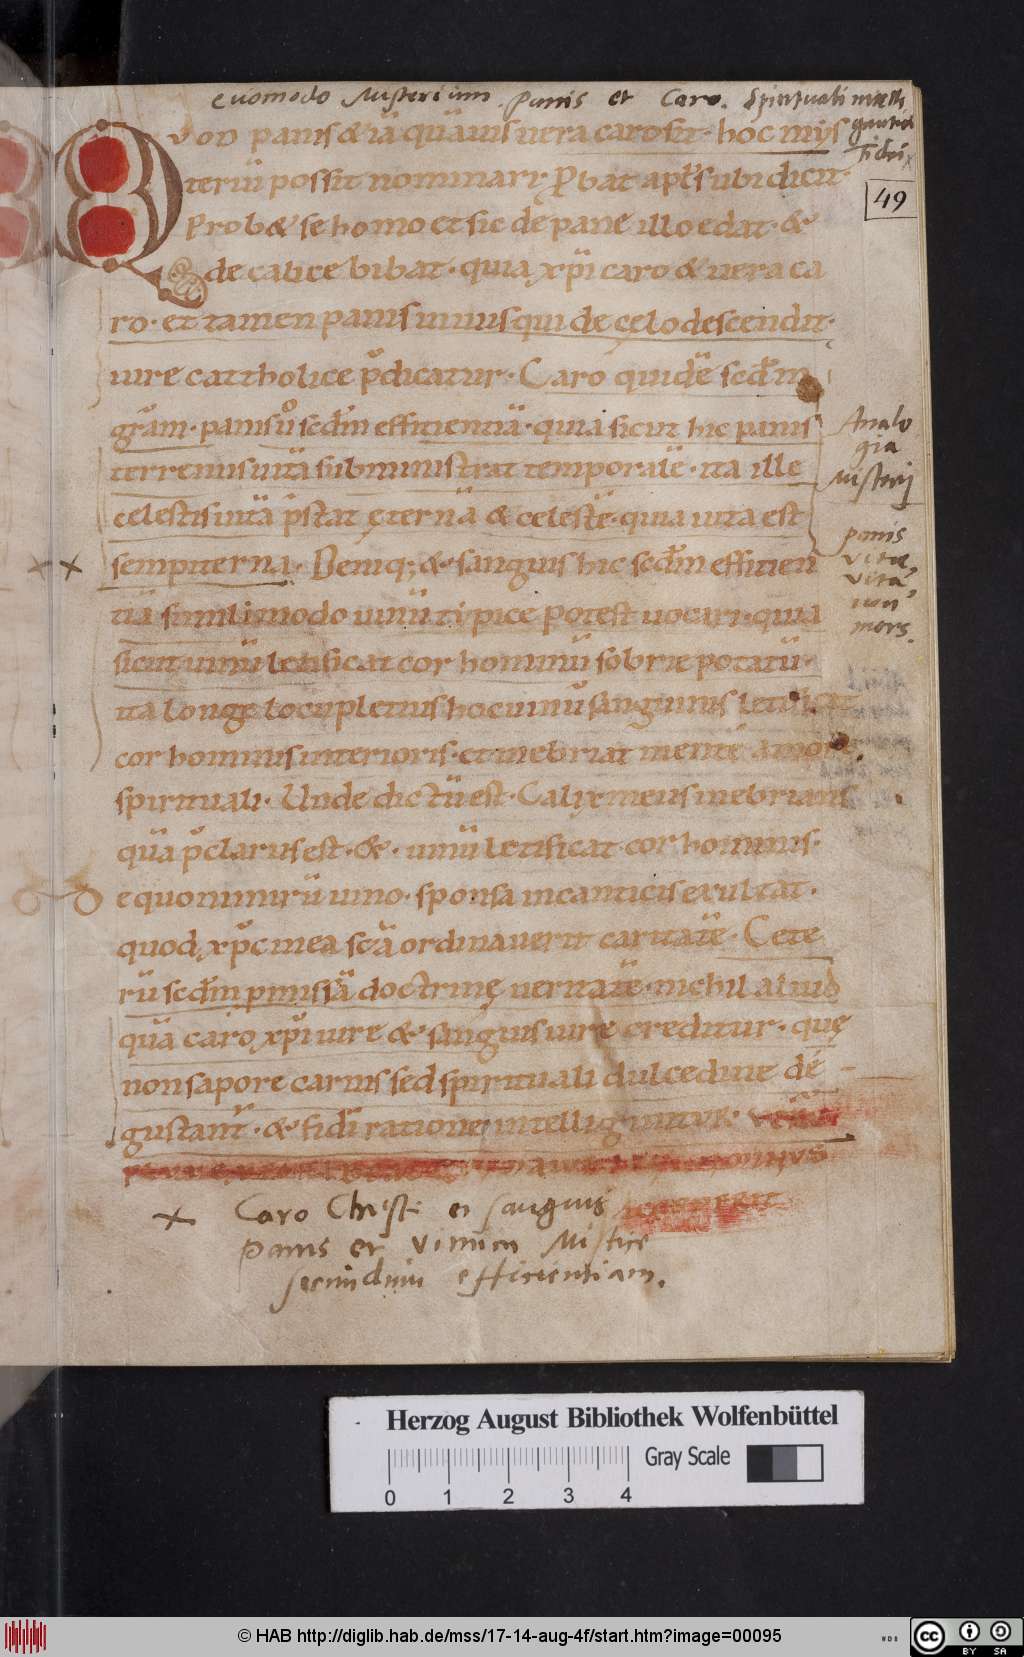 Quomodo Misterium panis et Caro. Spirituali intelli
gantia
Fidei
49
Qvod panis & iā quāuis uera caro sit· hoc mys
teriū possit nominari· Pbat apl's ubi dicit·
Prob& se homo et sic de pane illo edat· &
de calice bibat· quia xp̄i caro & uera ca
ro· et tamen panis uiuus qui de cęlo descendit·
iure cattholice p̄dicatur· Caro quidē scd'm
grām· panis ů scd'm effitientiā· quia sicut hic panis
terrenus uitā subministrat temporalē· ita ille
celestis uitā p̄stat ęternā & celestē· quia uita est
sempiterna· Deniq; & sanguis hic scd'm effitien
tiā simili modo uinū tipice potest uocari· quia
sicut uinū letificat cor hominū sobrie potatū·
ita longe locupletius hoc uinū sanguinis letificat
cor hominis interioris· et inebriat mentē amore
spirituali· Unde dictū est· Calix meus inebrians
quā p̄clarus est· &· uinū letificat cor hominis·
e quo nimirū uino· sponsa in canticis exultat·
quod xp̄c in ea scā ordinauerit caritatē· Cete
rū scd'm promissā doctrinę ueritatē· nichil aliud
quā caro xp̄i iure & sanguis uire creditur· quę
non sapore carnis sed spirituali dulcedine dē
gustant̄· & fidi ratione intelliguntur·
Analo
gia
Misterij
panis
vitae,
vita,
non
mors.
Caro Christi et sanguis
panis et vinum Mistice
secundum efficientiam.
Herzog August Bibliothek Wolfenbüttel
Gray Scale
0 1 2 3 4
© HAB http://diglib.hab.de/mss/17-14-aug-4f/start.htm?image=00095
WDB
cc BY SA